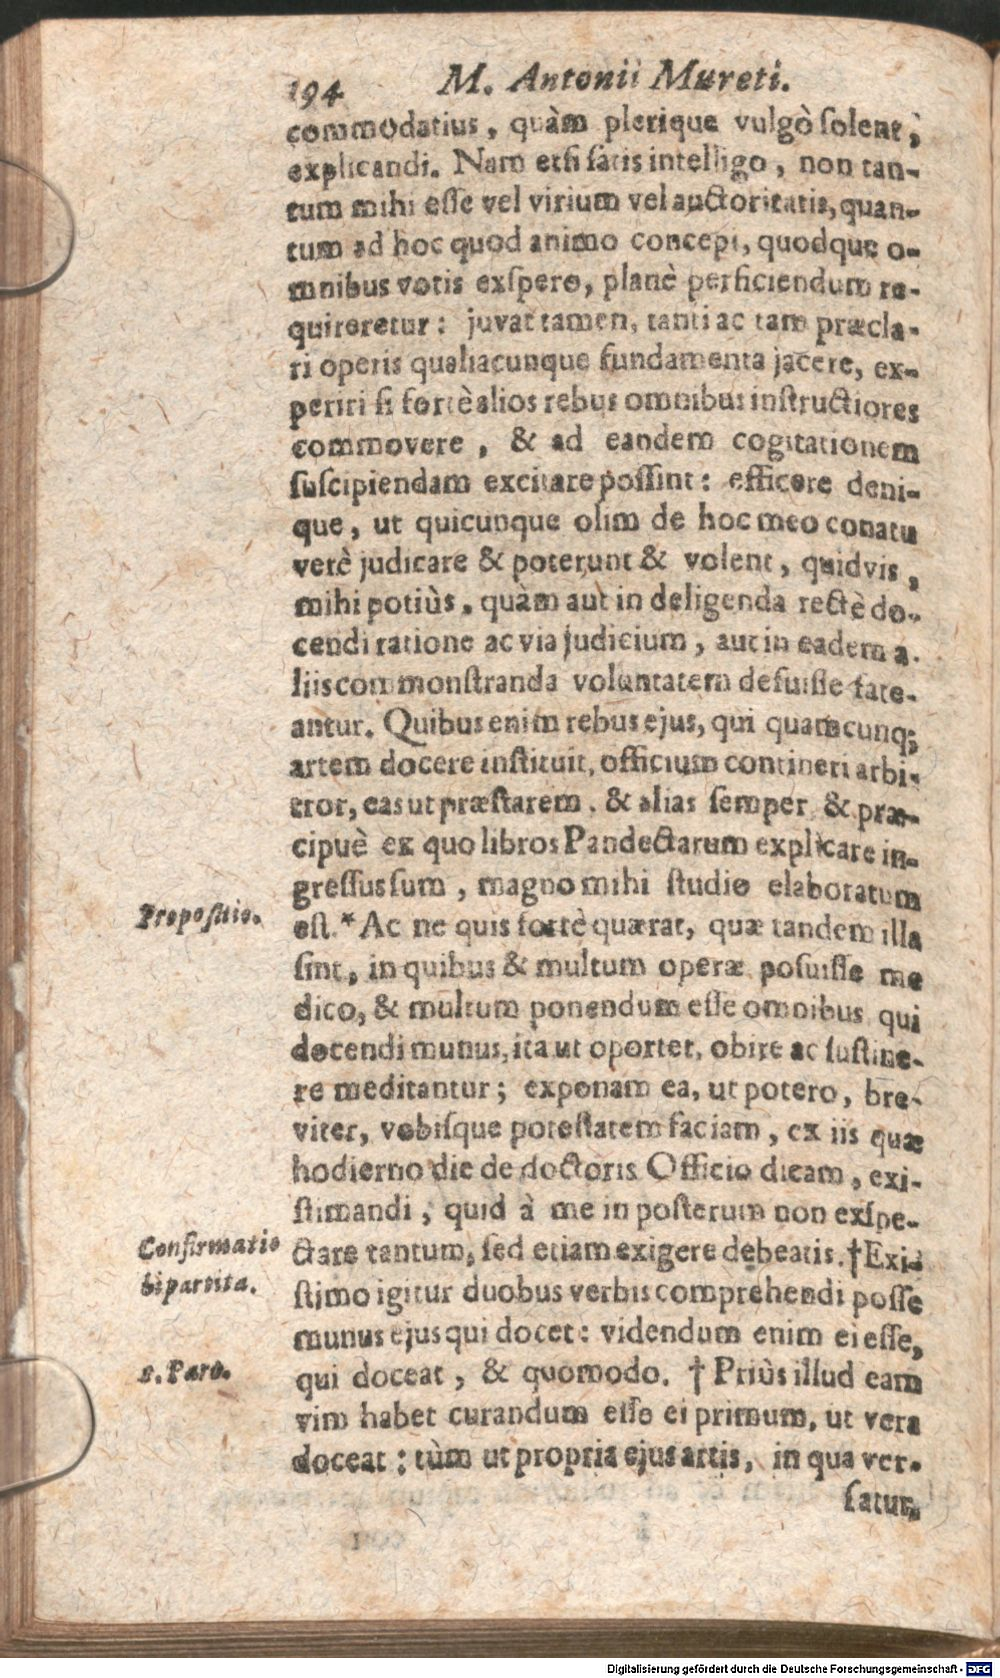 194 M. Antonii Mureti.
commodatius, quàm plerique vulgò ſolent,
explicandi. Nam etſi ſatis intelligo, non tan-
tum mihi eſſe vel virium vel auctoritatis, quan-
tum ad hoc quod animo concepi, quodque o-
mnibus votis exſpero, planè perficiendum re-
quireretur: juvat tamen, tanti ac tam præcla-
ri operis qualiacunque fundamenta jacere, ex-
periri ſi fortè alios rebus omnibus inſtructiores
commovere, & ad eandem cogitationem
ſuſcipiendam excitare poſſint: efficere deni-
que, ut quicunque olim de hoc meo conatu
verè judicare & poterunt & volent, quidvis,
mihi potiùs, quàm aut in deligenda rectè do-
cendi ratione ac via judicium, aut in eadem a-
liis commonſtranda voluntatem defuiſſe fate-
antur. Quibus enim rebus ejus, qui quamcunq;
artem docere inſtituit, officium contineri arbi-
tror, eas ut præſtarem, & alias ſemper & præ-
cipuè ex quo libros Pandectarum explicare in-
greſſus ſum, magno mihi ſtudio elaboratum
Propoſitio. eſt. * Ac ne quis fortè quærat, quæ tandem illa
ſint, in quibus & multum operæ poſuiſſe me
dico, & multum ponendum eſſe omnibus qui
docendi munus, ita ut oportet, obire ac ſuſtine-
re meditantur; exponam ea, ut potero, bre-
viter, vobiſque poteſtatem faciam, ex iis quæ
hodierno die de doctoris Officio dicam, exi-
ſtimandi, quid à me in poſterum non exſpe-
Confirmatio ctare tantum, ſed etiam exigere debeatis. † Exi-
bipartita. ſtimo igitur duobus verbis comprehendi poſſe
munus ejus qui docet: videndum enim ei eſſe,
1. Pars. qui doceat, & quomodo. † Priùs illud eam
vim habet curandum eſſe ei primum, ut vera
doceat: tùm ut propria ejus artis, in qua ver-
ſatur,
Digitalisierung gefördert durch die Deutsche Forschungsgemeinschaft - DFG